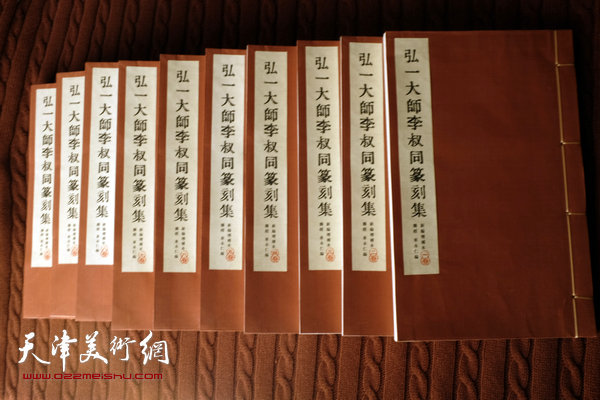 弘一大師李叔同篆刻集
弘一大師李叔同篆刻集
弘一大師李叔同篆刻集
弘一大師李叔同篆刻集
弘一大師李叔同篆刻集
弘一大師李叔同篆刻集
弘一大師李叔同篆刻集
弘一大師李叔同篆刻集
弘一大師李叔同篆刻集
弘一大師李叔同篆刻集
天津美術網
www.022meishu.com